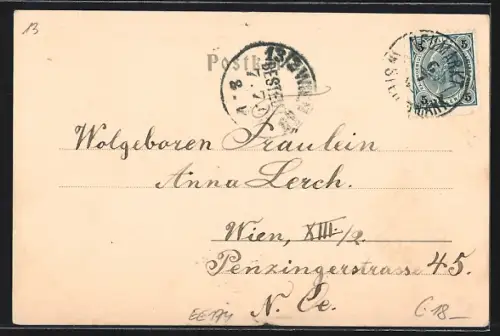 13
Postk
5 5
13/2 WIEN
BESTELLT
8. V
Wolgeboren Fräulein
Anna Lerch.
Wien, XIII/2.
Penzingerstrasse 45.
N. Oe.
EE174
C 18-